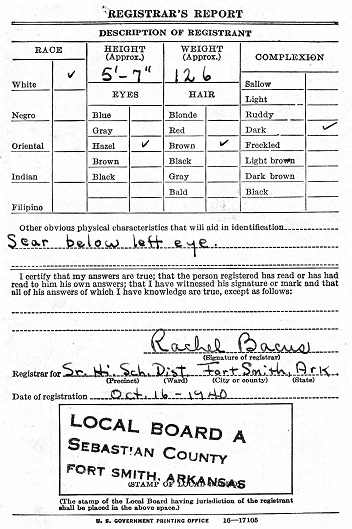 REGISTRAR'S REPORT
DESCRIPTION OF REGISTRANT
RACE HEIGHT (Approx.) WEIGHT (Approx.) COMPLEXION
White ✓ 5'-7" 126 Sallow
Light
EYES HAIR
Negro Blue Blonde Ruddy
Gray Red Dark ✓
Oriental Hazel ✓ Brown ✓ Freckled
Brown Black Light brown
Indian Black Gray Dark brown
Bald Black
Filipino
Other obvious physical characteristics that will aid in identification
Scar below left eye.
I certify that my answers are true; that the person registered has read or has had
read to him his own answers; that I have witnessed his signature or mark and that
all of his answers of which I have knowledge are true, except as follows:
Rachel Bacus
(Signature of registrar)
Registrar for Sr. Hi. Sch. Dist Fort Smith, Ark
(Precinct) (Ward) (City or county) (State)
Date of registration Oct. 16 - 1940
LOCAL BOARD A
SEBASTIAN COUNTY
FORT SMITH, ARKANSAS
(The stamp of the Local Board having jurisdiction of the registrant
shall be placed in the above space.)
U. S. GOVERNMENT PRINTING OFFICE 16—17105